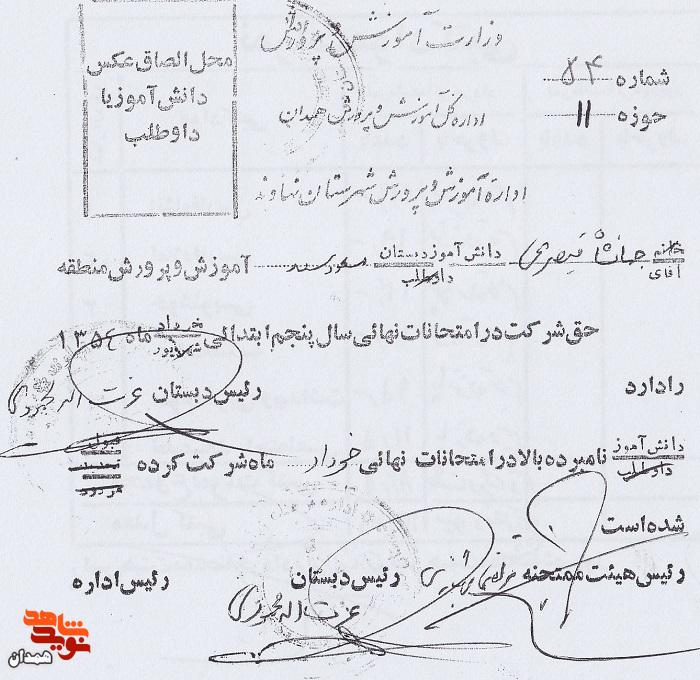 وزارت آموزش و پرورش
شماره ۵۴
حوزه ۱۱
اداره کل آموزش و پرورش همدان
محل الصاق عکس
دانش آموز یا
داوطلب
اداره آموزش و پرورش شهرستان نهاوند
خانم آقای جانشا قیصری دانش آموز داوطلب دبستان آموزش و پرورش منطقه
حق شرکت در امتحانات نهائی سال پنجم ابتدائی خرداد شهریور ماه ۱۳۵٤
را دارد
رئیس دبستان عزت اله
دانش آموز داوطلب نامبرده بالا در امتحانات نهائی خرداد ماه شرکت کرده قبول تجدید مردود
شده است
رئیس هیئت ممتحنه
رئیس دبستان
رئیس اداره
عزت اله
نوید شاهد
همدان